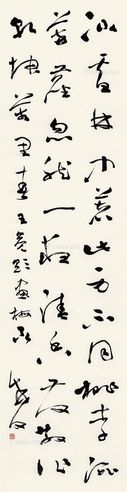 冰雪林中著此身不同桃李混
芳塵忽然一夜清香發散作
乾坤萬里春王冕題畫梅